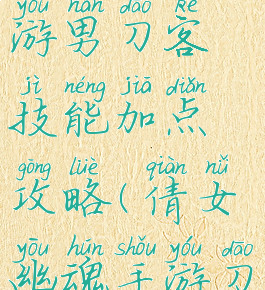 yóu nán dāo kè
游男刀客
jì néng jiā diǎn
技能加点
gōng lüè qiàn nǚ
攻略(倩女
yōu hún shǒu yóu dāo
幽魂手游刀